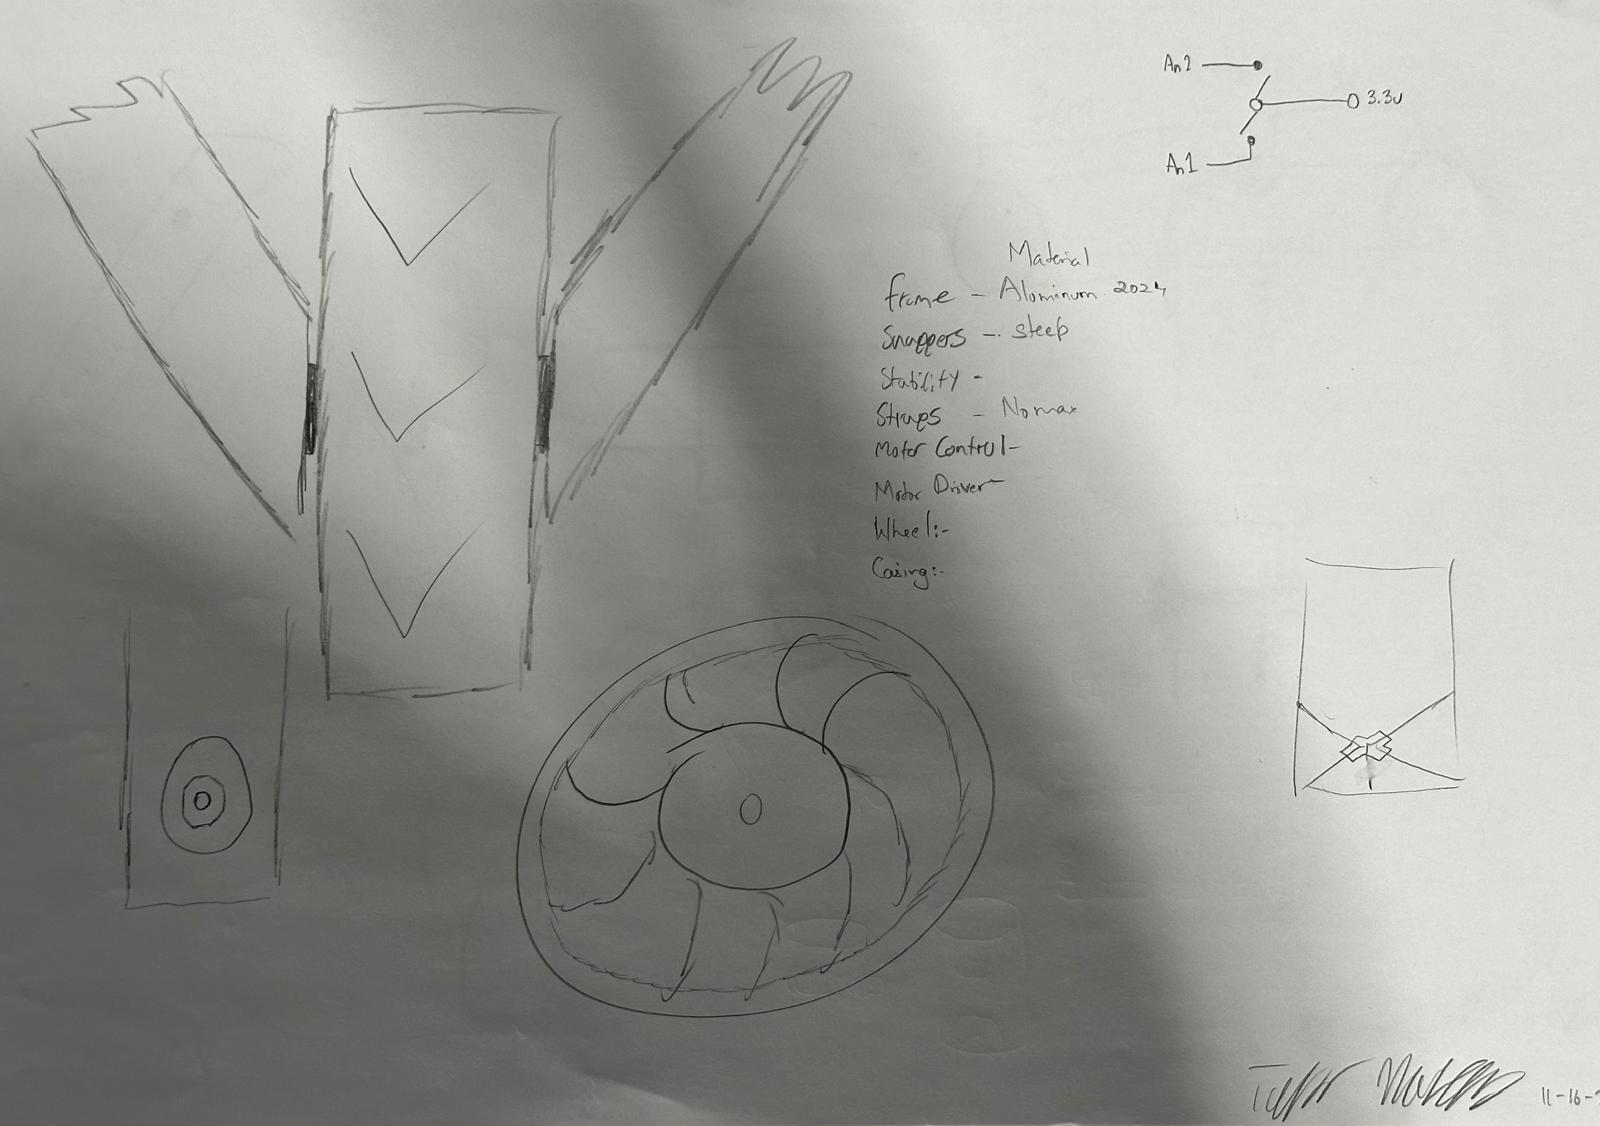 An2
3.3v
An1
Material
frame - Aluminum 2024
Snappers - steep
Stability -
Straps - Nomax
Motor Control -
Motor Driver -
Wheel:-
Casing:-
11-16-